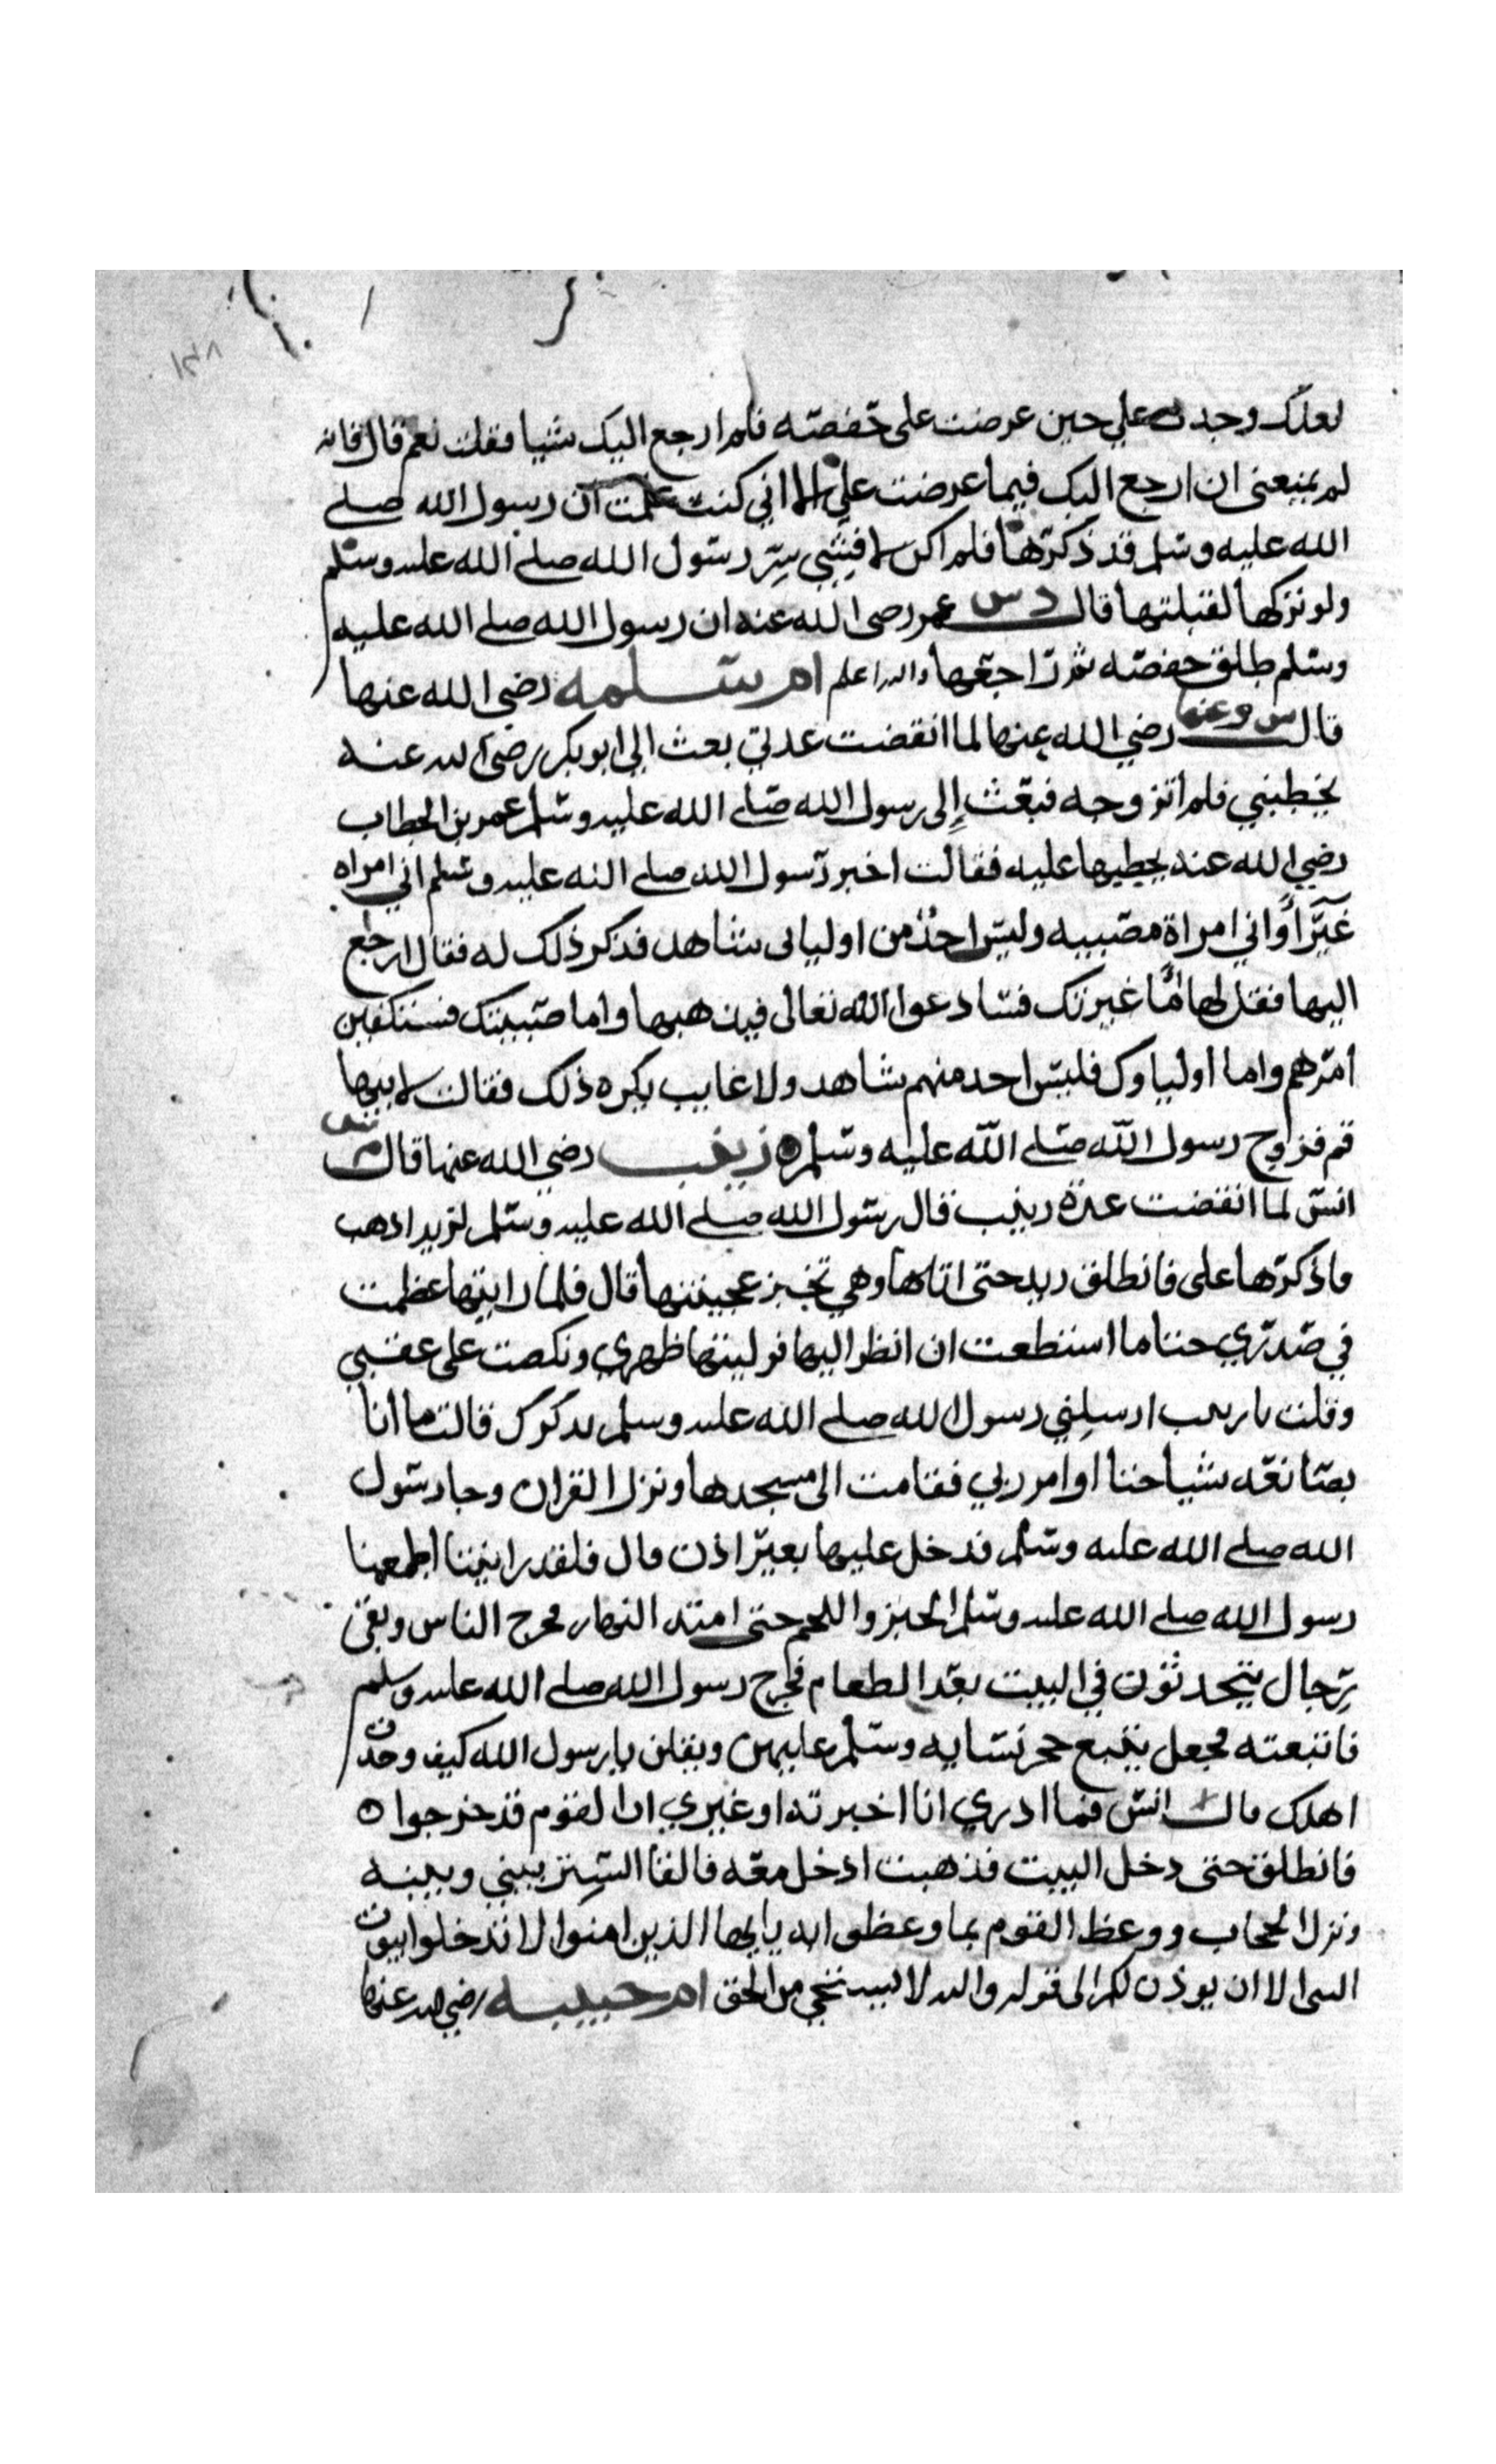 ١٣٨
لعلك وجدت علي حين عرضت على حفصه فلم ارجع اليك شيا فقلت نعم قال فانه
لم يمنعنى ان ارجع اليك فيما عرضت علي الا اني كنت علمت ان رسول الله صلى
الله عليه وسلم قد ذكرها فلم اكن لافشي سر رسول الله صلى الله عليه وسلم
ولو تركها لقبلتها قال د س عمر رضى الله عنه ان رسول الله صلى الله عليه
وسلم طلق حفصه ثم راجعها والله اعلم ام سلمه رضي الله عنها
قال س وعنها رضي الله عنها لما انقضت عدتي بعث الي ابو بكر رضى الله عنه
يخطبني فلم اتزوجه فبعث إلى رسول الله صلى الله عليه وسلم عمر بن الخطاب
رضي الله عنه يخطبها عليه فقالت اخبر رسول الله صلى الله عليه وسلم اني امراه
غيرا واني امراة مصبيه وليس احد من اوليائى شاهد فذكر ذلك له فقال ارجع
اليها فقل لها امّا غيرتك فسادعوا الله تعالى فيذهبها واما صبيتك فستكفين
امرهم واما اولياوك فليس احد منهم شاهد ولا غايب يكره ذلك فقالت لابنها
قم فزوج رسول الله صلى الله عليه وسلم ه زينب رضي الله عنها قال م س
انس لما انقضت عدة زينب قال رسول الله صلى الله عليه وسلم لزيد اذهب
فاذكرها على فانطلق زيد حتى اتاها وهي تخبز عجينتها قال فلما رايتها عظمت
في صدري حتا ما استطعت ان انظر اليها فوليتها ظهري ونكصت على عقبي
وقلت يا زينب ارسلني رسول الله صلى الله عليه وسلم يذكرك قالت ما انا
بصانعه شيا حتا اوامر ربي فقامت الى مسجدها ونزل القران وجا رسول
الله صلى الله عليه وسلم فدخل عليها بغير اذن قال فلقد رايتنا اطعمنا
رسول الله صلى الله عليه وسلم الخبز واللحم حتى امتد النهار فخرج الناس وبقى
رجال يتحدثون في البيت بعد الطعام فخرج رسول الله صلى الله عليه وسلم
فاتبعته فجعل يتبع حجر نسايه وسلم عليهن ويقلن يا رسول الله كيف وجدت
اهلك قال انس فما ادري انا اخبرته او غيري ان القوم قد خرجوا ه
فانطلق حتى دخل البيت فذهبت ادخل معه فالقا الستر بيني وبينه
ونزل الحجاب ووعظ القوم بما وعظوا به يا ايها الذين امنوا لا تدخلوا بيوت
النبى الا ان يوذن لكم الى قوله والله لا يستحي من الحق ام حبيبه رضي الله عنها